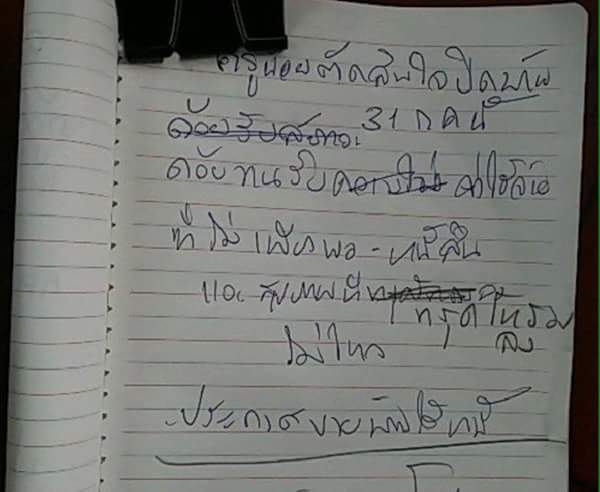 ครูน้อยตัดสินใจปิดบ้าน
31 กค นี้
ด้วยรับสภาวะ
ด้วยทนรับ ค่าใช้จ่าย
ที่ไม่เพียงพอ - หนี้สิน
และ สุขภาพที่ ทรุดโทรม
ลง
ไม่ไหว
ประกาศขายบ้านใช้หนี้